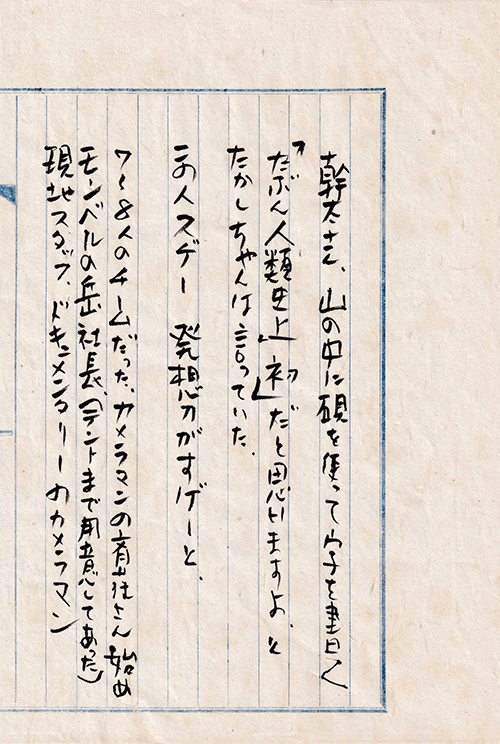 幹太さん、山の中に硯を使って字を書く
「たぶん人類史上「初」だと思いますよ、と
たかしちゃんは言っていた。
この人スゲー 発想力がすげーと、
7〜8人のチームだった、カメラマンの さん始め
モンベルの岳社長、(テントまで用意してあった)
現地スタッフ、ドキュメンタリーのカメラマン